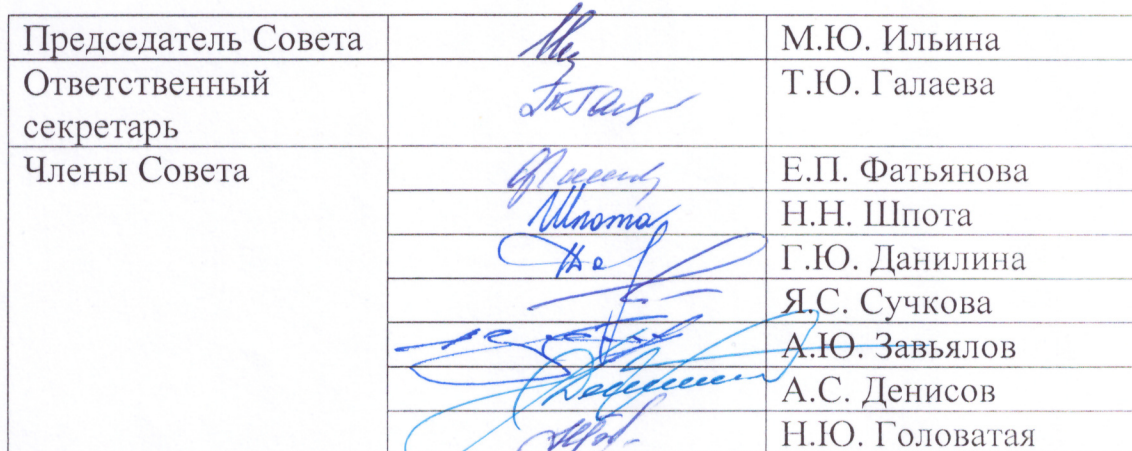 Председатель Совета М.Ю. Ильина
Ответственный Т.Ю. Галаева
секретарь
Члены Совета Е.П. Фатьянова
Шпота Н.Н. Шпота
Г.Ю. Данилина
Я.С. Сучкова
А.Ю. Завьялов
А.С. Денисов
Н.Ю. Головатая